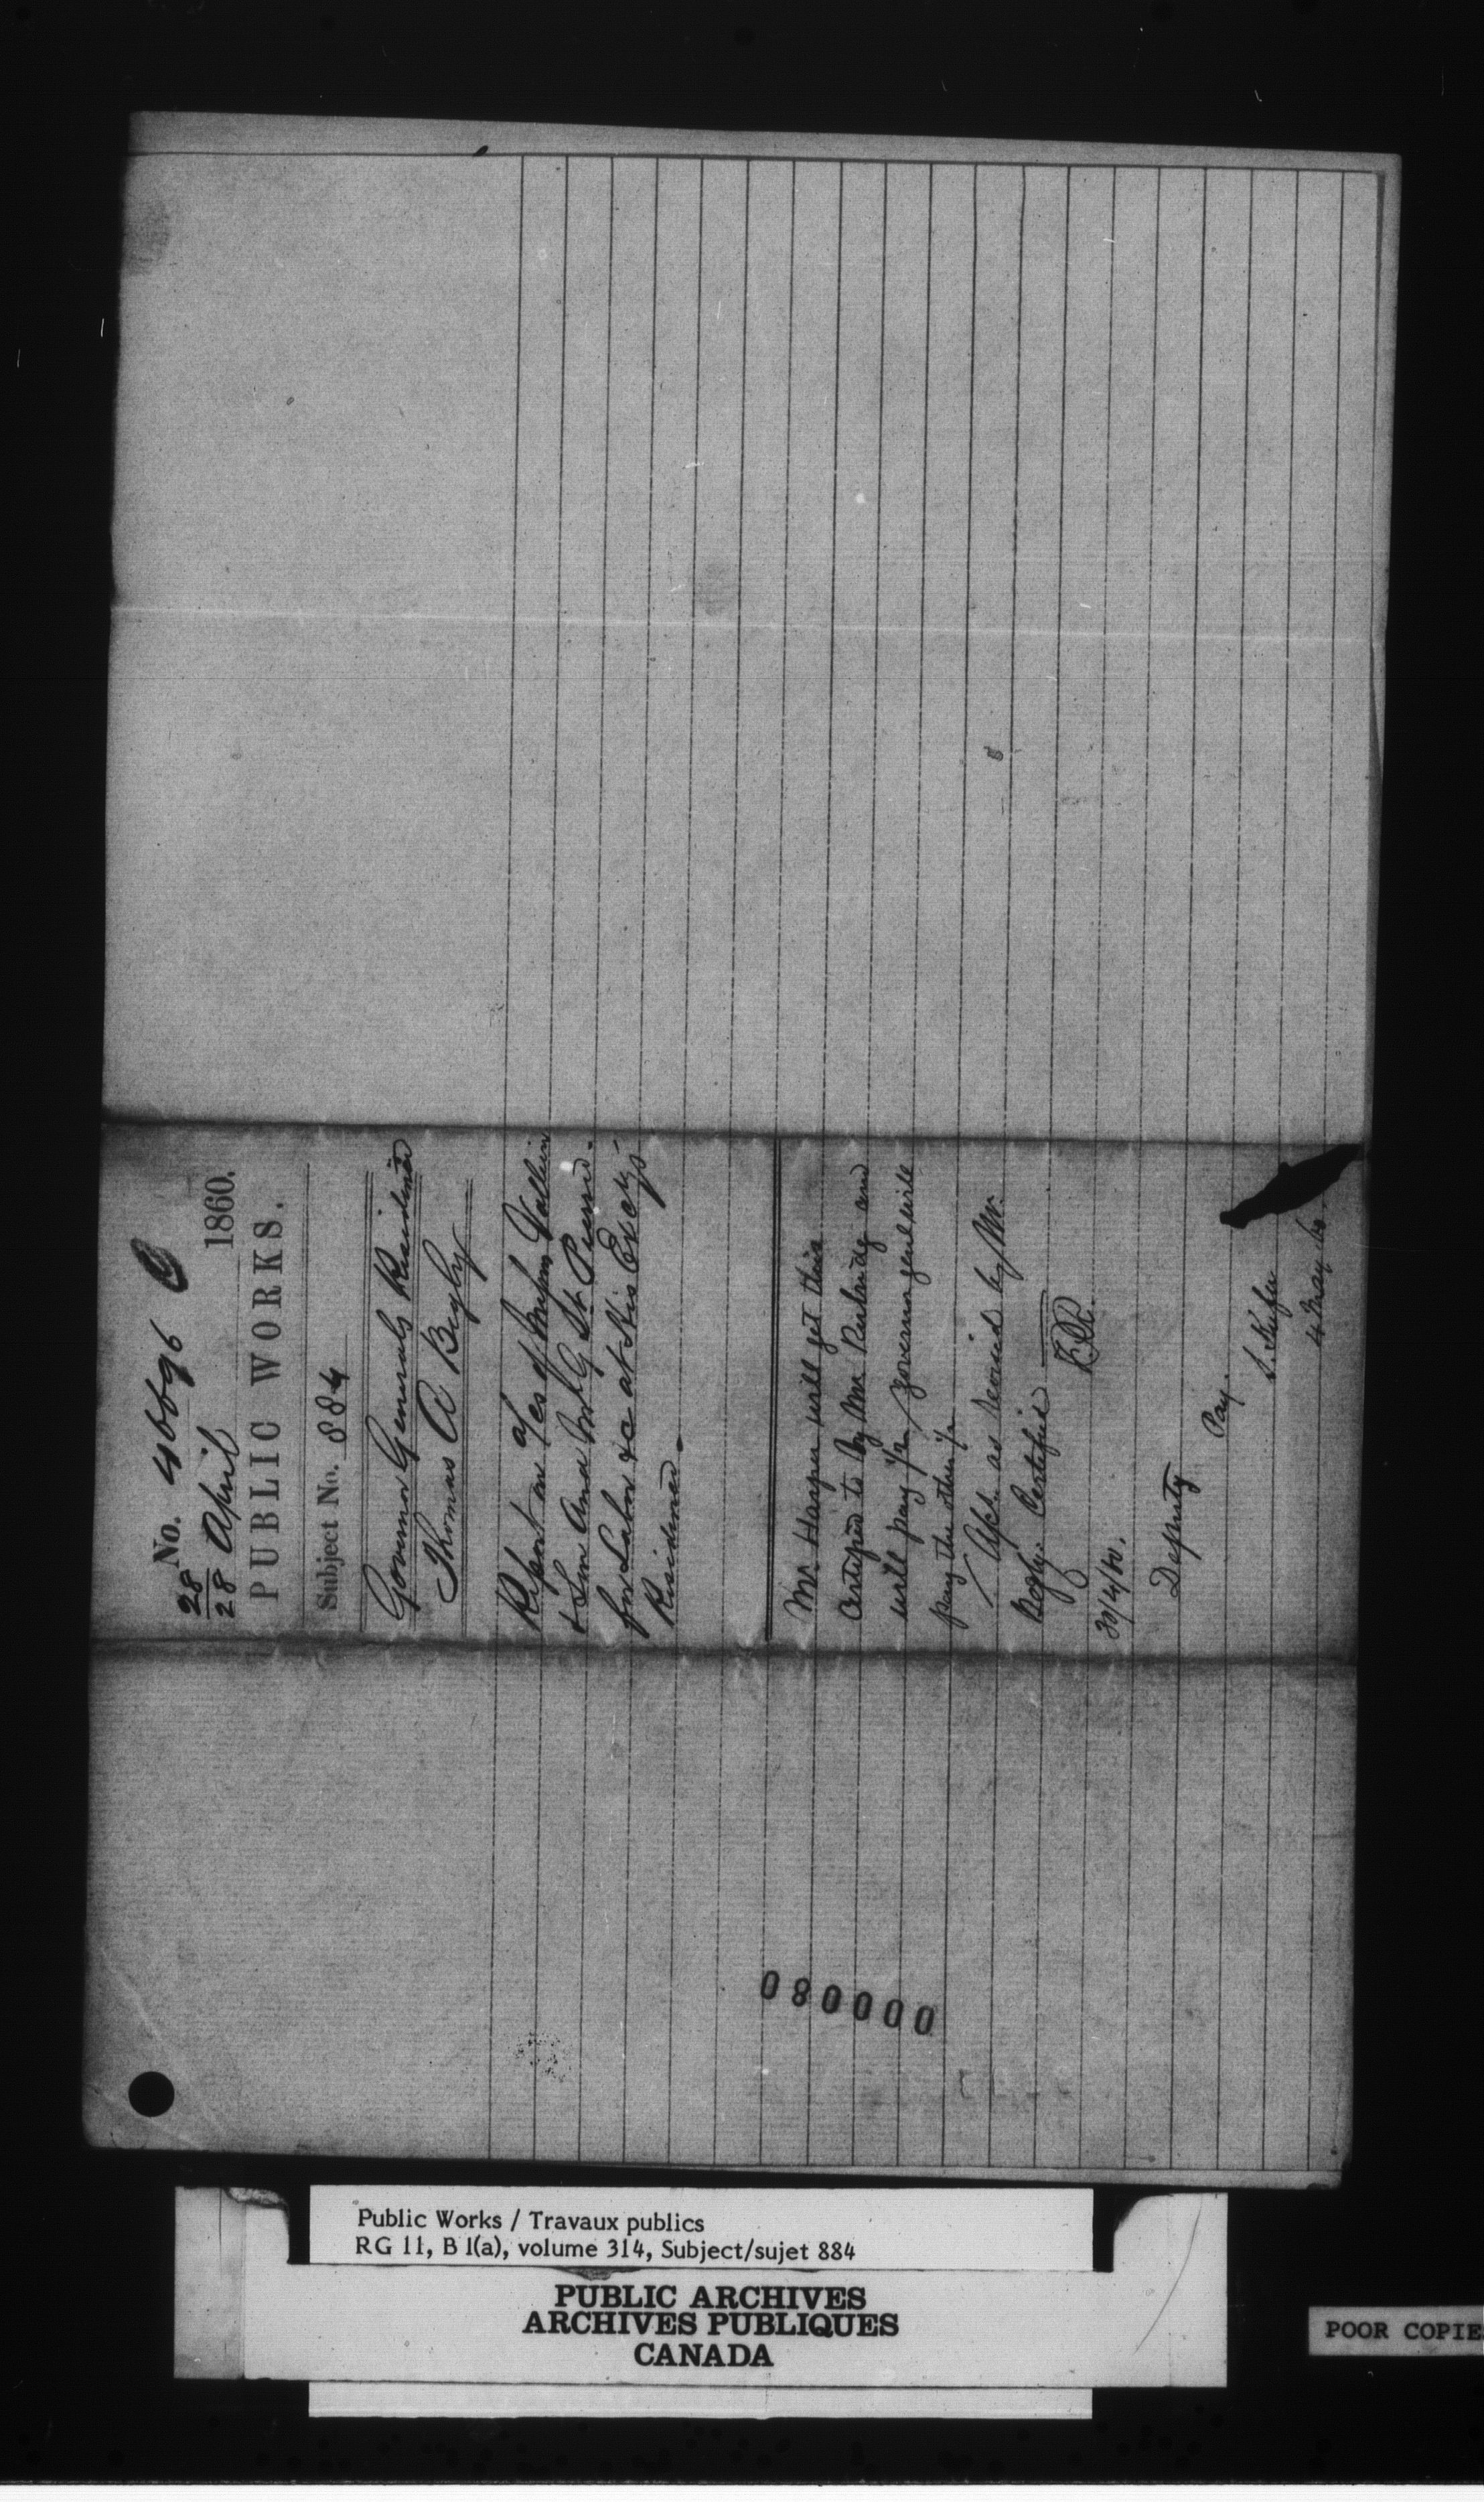 No. 46696
28/28 April 1860.
PUBLIC WORKS.
Subject No. 884
Governor Generals Residence
Thomas A Begly
Report on a/cs of Messrs
& Son And St.
for Labor &c at His Excys
Residence.
Mr. Harper will get this
Certified to by Mr Rubidge and
will pay 1/2 / Governor genl will
pay the other 1/2
/ Apl. as revised by Mr.
Begly. Certified
30/4/60.
Deputy
Pay.
S. Keefer
4 May 60.
000080
Public Works / Travaux publics
RG 11, B 1(a), volume 314, Subject/sujet 884
PUBLIC ARCHIVES
ARCHIVES PUBLIQUES
CANADA
POOR COPIE